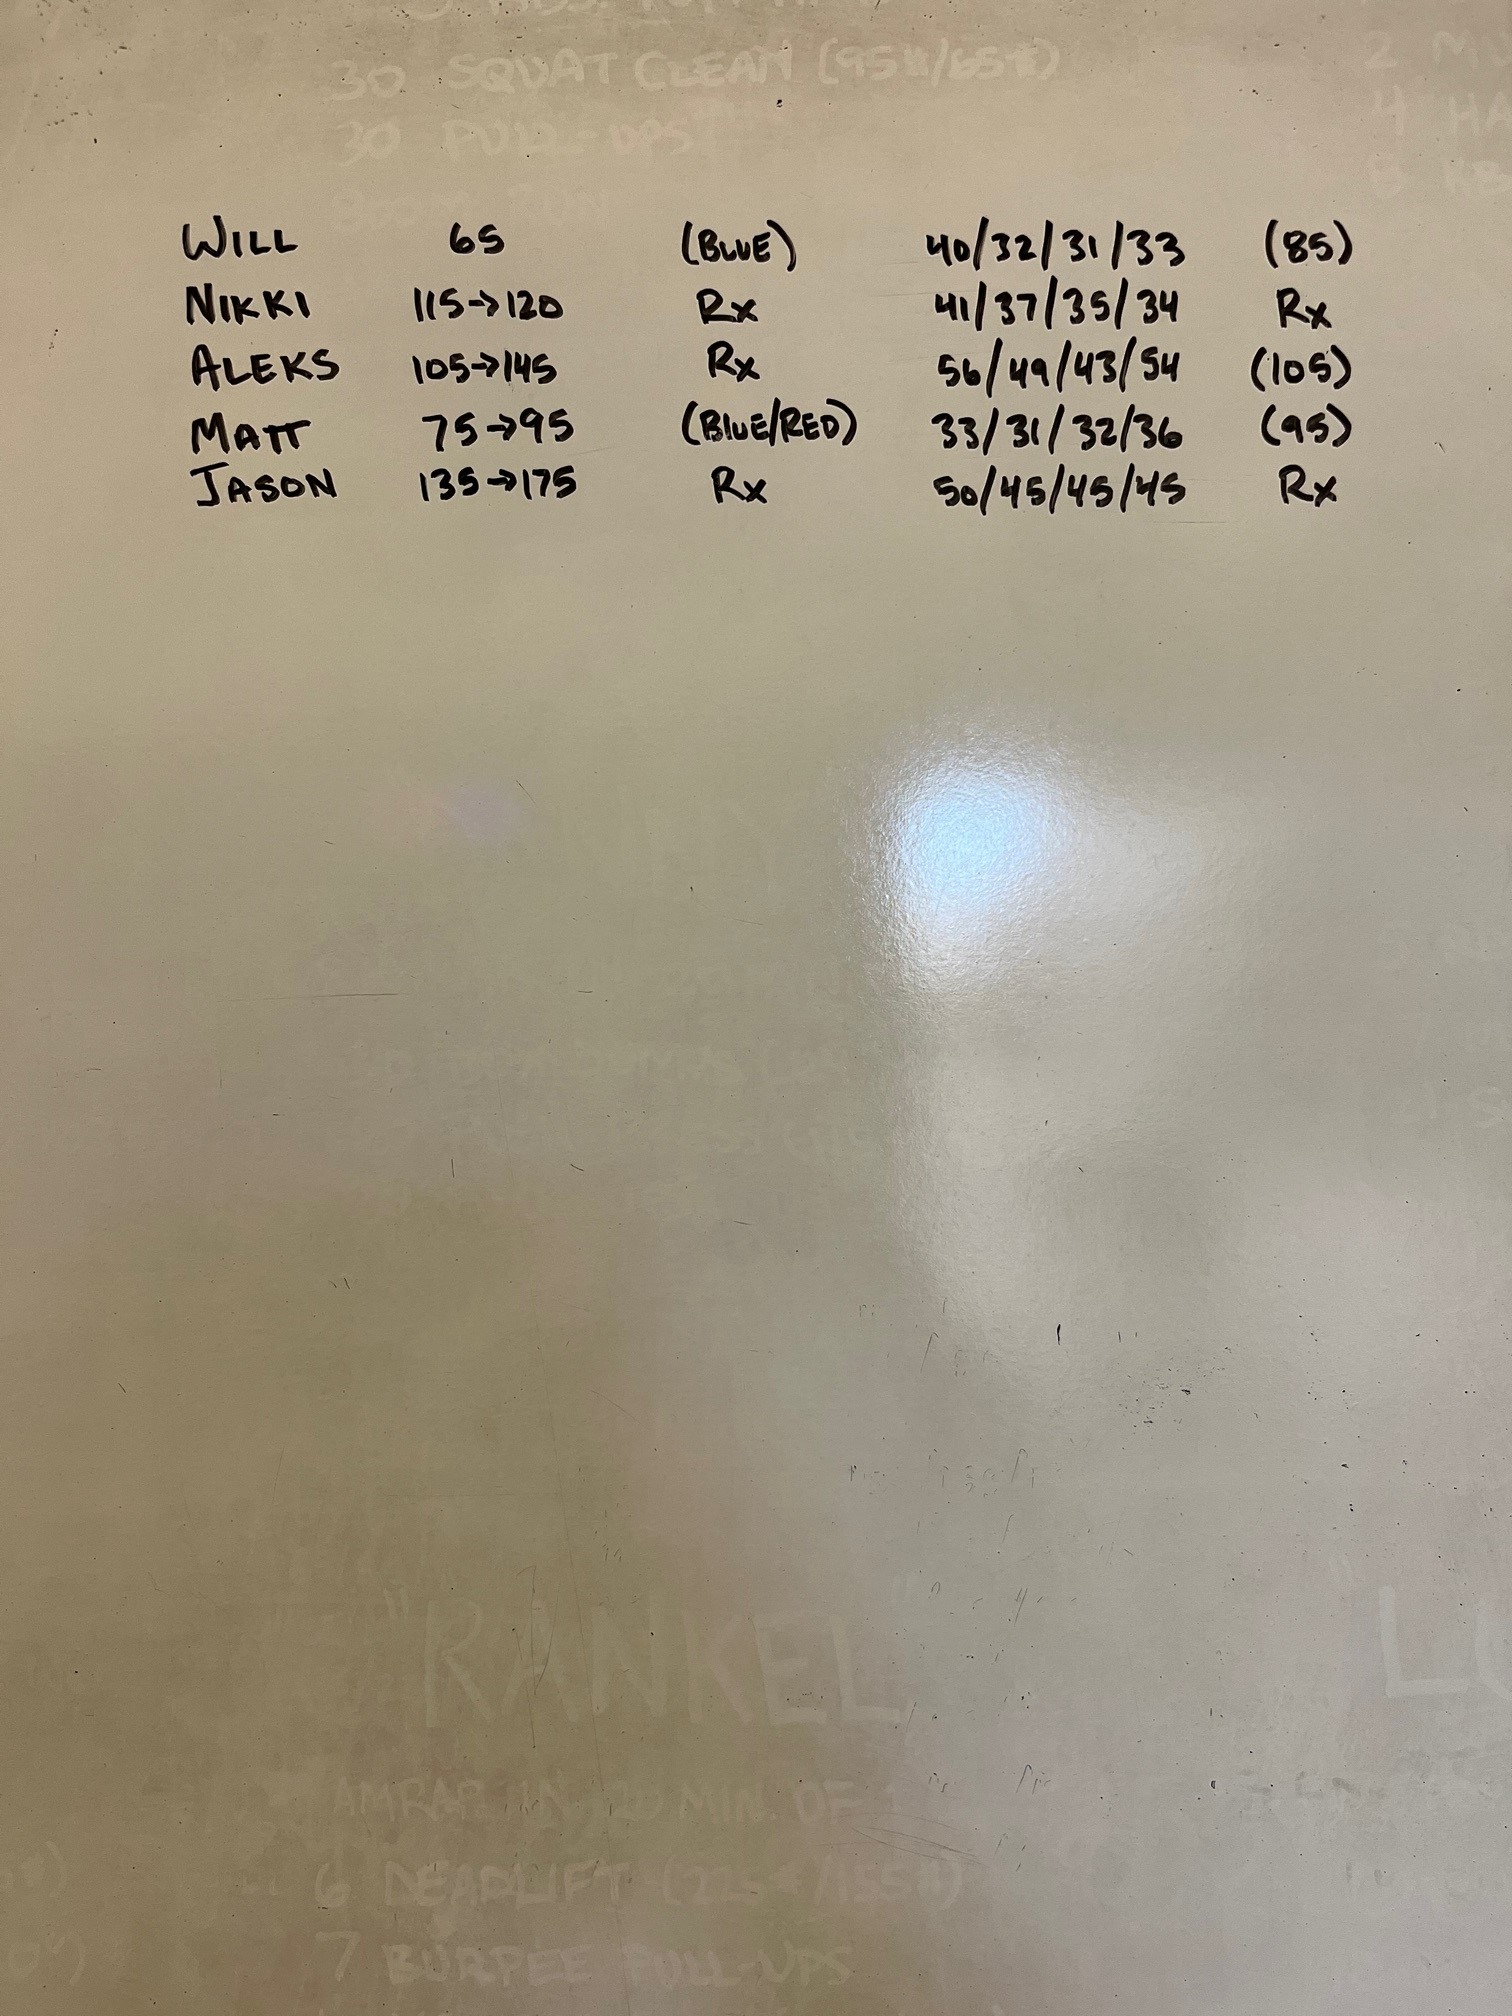 30 SQUAT CLEAN (95#/65#)
30 PULL-UPS
800M RUN
WILL 65 (BLUE) 40/32/31/33 (85)
NIKKI 115→120 Rx 41/37/35/34 Rx
ALEKS 105→145 Rx 56/49/43/54 (105)
MATT 75→95 (BLUE/RED) 33/31/32/36 (95)
JASON 135→175 Rx 50/45/45/45 Rx
"RANKEL"
AMRAP IN 20 MIN. OF
6 DEADLIFT (225#/155#)
7 BURPEE PULL-UPS